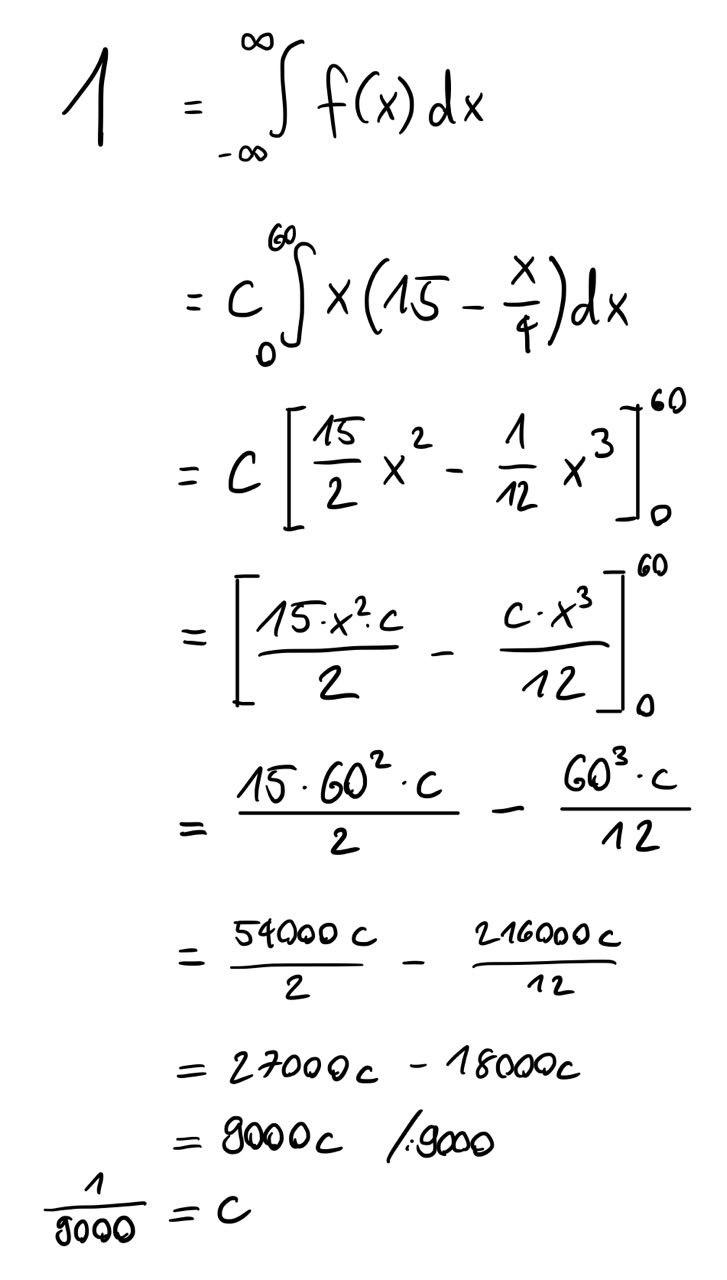 1 = ∫_{-∞}^{∞} f(x) dx
= c ∫_{0}^{60} x (15 - x/4) dx
= c [15/2 x² - 1/12 x³]_{0}^{60}
= [15·x²·c/2 - c·x³/12]_{0}^{60}
= 15·60²·c/2 - 60³·c/12
= 54000c/2 - 216000c/12
= 27000c - 18000c
= 9000c /:9000
1/9000 = c